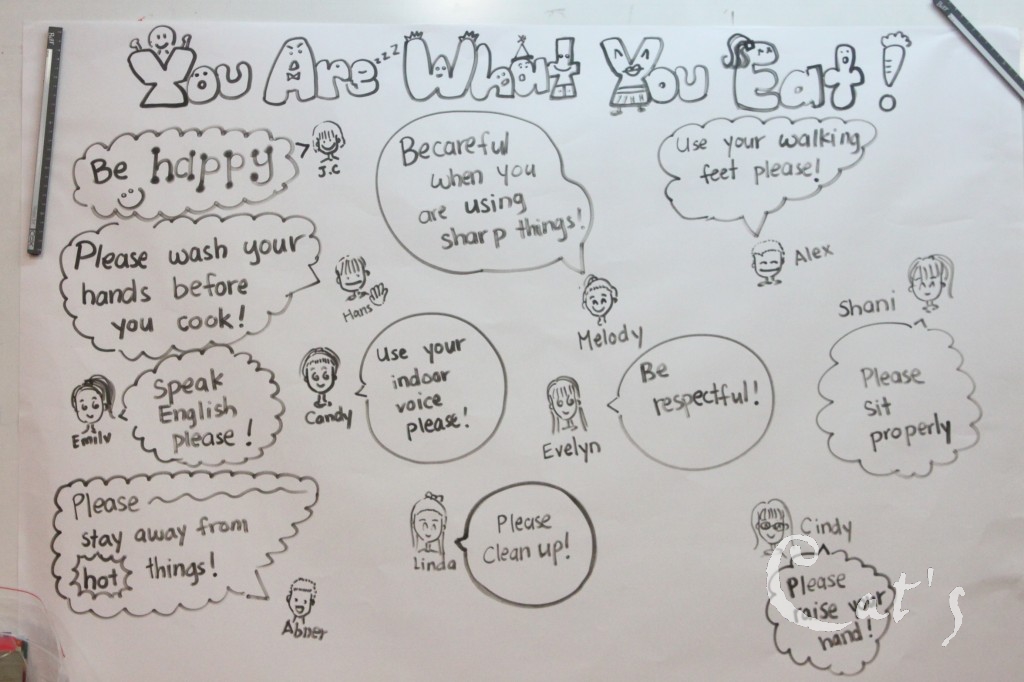 You Are zzz What You Eat!
Be happy
J.C
Becareful
when you
are using
sharp things!
Melody
Use your walking
feet please!
Alex
Please wash your
hands before
you cook!
Hans
Shani
Please
sit
properly
Speak
English
please!
Emily
Use your
indoor
voice
please!
Candy
Be
respectful!
Evelyn
Please
stay away from
hot things!
Abner
Please
Clean up!
Linda
Cindy
Please
raise your
hand!
Cat's